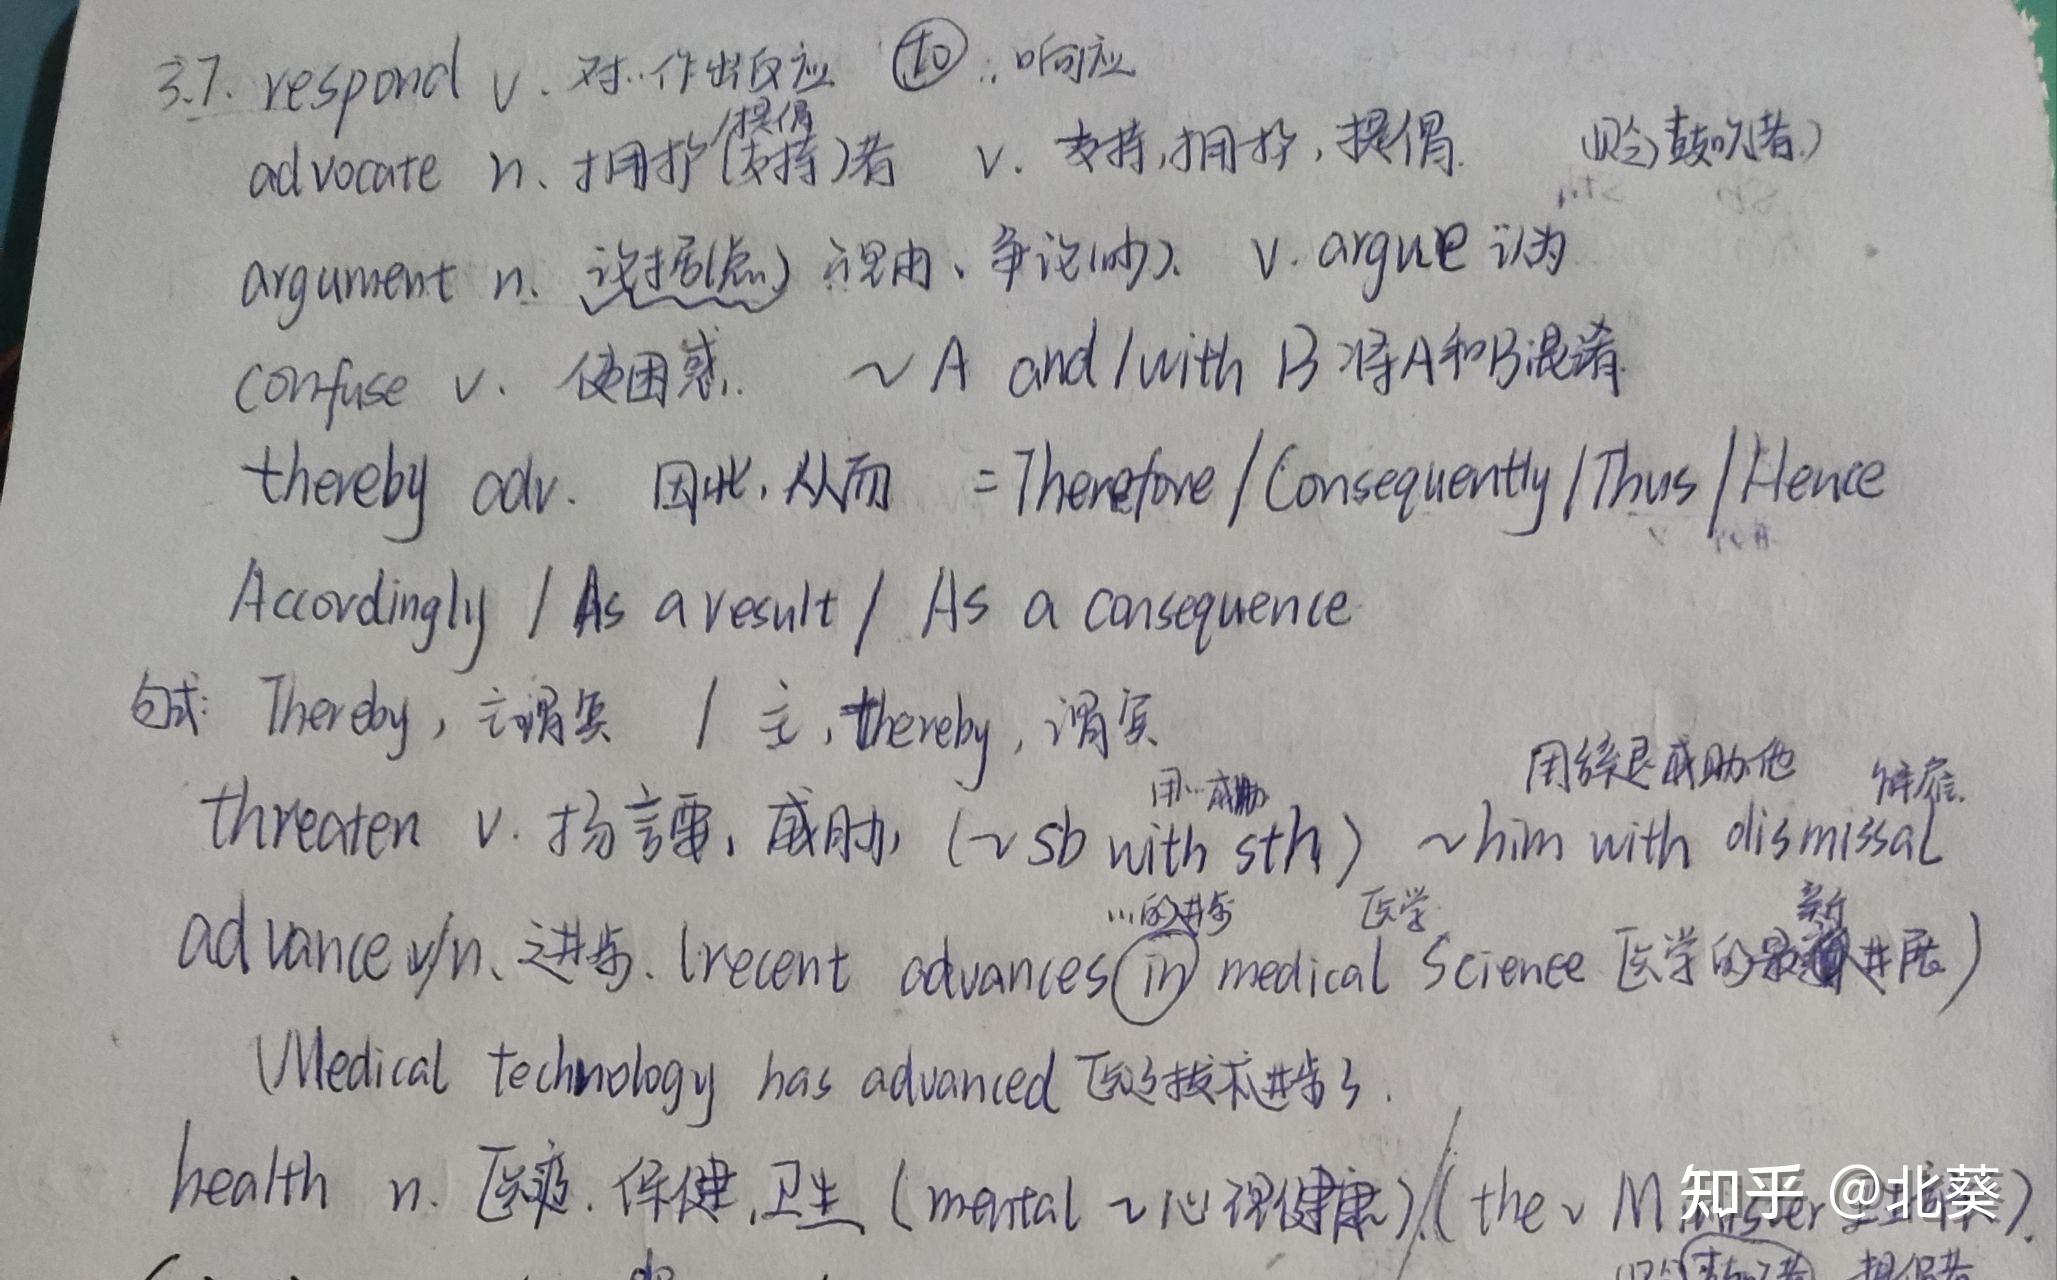 3.7. respond v. 对..作出反应 to ..响应
/提倡
advocate n. 拥护(支持)者 v. 支持,拥护,提倡. 鼓吹者)
argument n. 论据(点) 理由、争论(吵)、 v. argue 认为
confuse v. 使困惑. ~ A and/with B 将A和B混淆
thereby adv. 因此,从而 =Therefore/Consequently/Thus/Hence
Accordingly / As a result / As a consequence
句式: Thereby, 主谓宾 / 主, thereby, 谓宾
用…威胁 用辞退威胁他 解雇.
threaten v. 扬言要, 威胁, (~ sb with sth) ~him with dismissal
…的进步 医学 新
advance v/n、进步. (recent advances in medical science 医学的进展)
(Medical technology has advanced 医疗技术进步了.
health n. 医疗.保健,卫生 (mental ~ 心理健康) (the ~ Minister
提倡者
知乎 @北葵